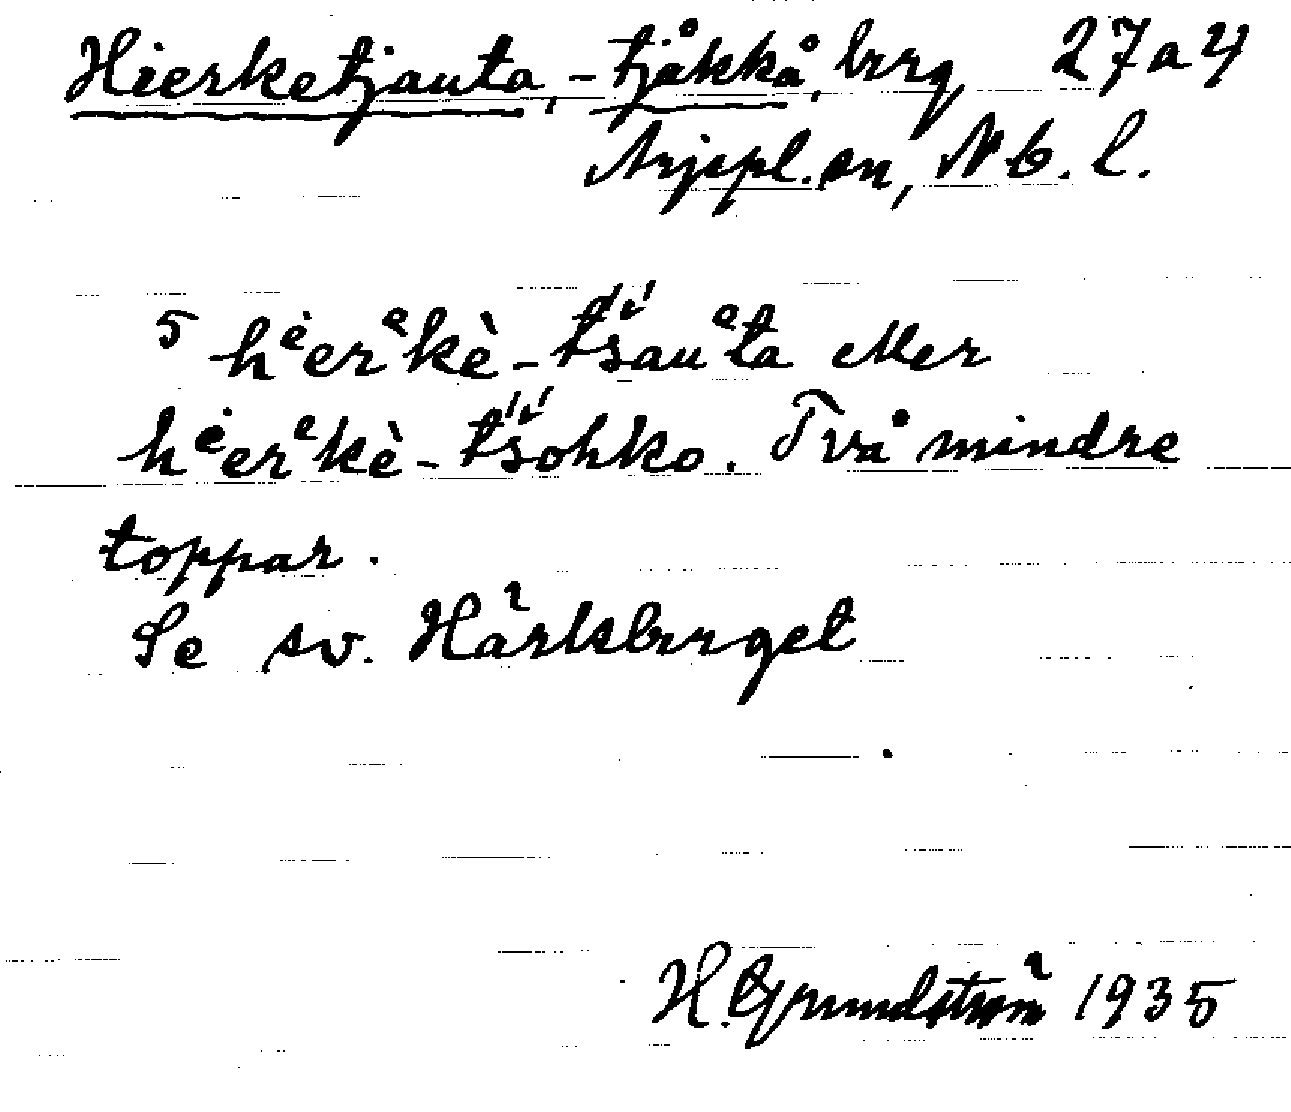 Hierketjauta, -tjåkkå, brrg 27a4
Arjepl. sn, Nb. l.
5 hėerᵉkè-tš́auᵉta eller
hėerᵉkè-tš́ohko. Två mindre
toppar.
Se sv. Härksbrrget
H. Grundström 1935